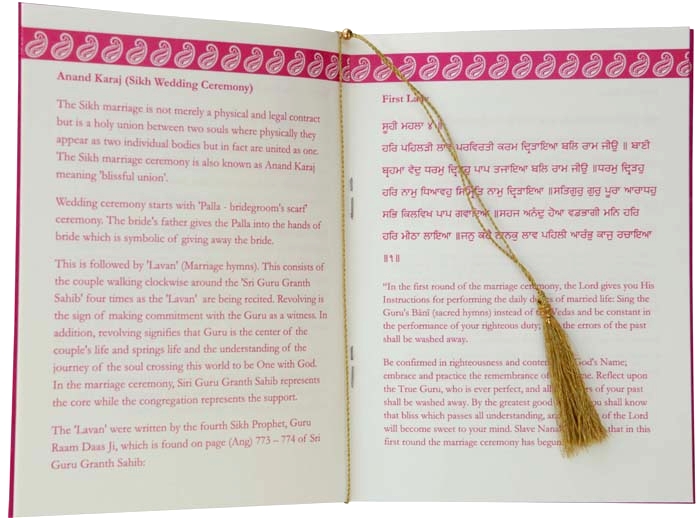 Anand Karaj (Sikh Wedding Ceremony)
The Sikh marriage is not merely a physical and legal contract
but is a holy union between two souls where physically they
appear as two individual bodies but in fact are united as one.
The Sikh marriage ceremony is also known as Anand Karaj
meaning 'blissful union'.
Wedding ceremony starts with 'Palla - bridegroom's scarf'
ceremony. The bride's father gives the Palla into the hands of
bride which is symbolic of giving away the bride.
This is followed by 'Lavan' (Marriage hymns). This consists of
the couple walking clockwise around the 'Sri Guru Granth
Sahib' four times as the 'Lavan' are being recited. Revolving is
the sign of making commitment with the Guru as a witness. In
addition, revolving signifies that Guru is the center of the
couple's life and springs life and the understanding of the
journey of the soul crossing this world to be One with God.
In the marriage ceremony, Siri Guru Granth Sahib represents
the core while the congregation represents the support.
The 'Lavan' were written by the fourth Sikh Prophet, Guru
Raam Daas Ji, which is found on page (Ang) 773 – 774 of Sri
Guru Granth Sahib:
First
ਸੂਹੀ ਮਹਲਾ ੪ ॥
ਹਰਿ ਪਹਿਲੜੀ ਲਾਵ ਪਰਵਿਰਤੀ ਕਰਮ ਦ੍ਰਿੜਾਇਆ ਬਲਿ ਰਾਮ ਜੀਉ ॥ ਬਾਣੀ
ਬ੍ਰਹਮਾ ਵੇਦੁ ਧਰਮੁ ਦ੍ਰਿੜਹੁ ਪਾਪ ਤਜਾਇਆ ਬਲਿ ਰਾਮ ਜੀਉ ॥ਧਰਮੁ ਦ੍ਰਿੜਹੁ
ਹਰਿ ਨਾਮੁ ਧਿਆਵਹੁ ਸਿਮ੍ਰਿਤਿ ਨਾਮੁ ਦ੍ਰਿੜਾਇਆ ॥ਸਤਿਗੁਰੁ ਗੁਰੁ ਪੂਰਾ ਆਰਾਧਹੁ
ਸਭਿ ਕਿਲਵਿਖ ਪਾਪ ਗਵਾਇਆ ॥ਸਹਜ ਅਨੰਦੁ ਹੋਆ ਵਡਭਾਗੀ ਮਨਿ ਹਰਿ
ਹਰਿ ਮੀਠਾ ਲਾਇਆ ॥ਜਨੁ ਕਹੈ ਨਾਨਕੁ ਲਾਵ ਪਹਿਲੀ ਆਰੰਭੁ ਕਾਜੁ ਰਚਾਇਆ
॥੧॥
"In the first round of the marriage ceremony, the Lord gives you His
Instructions for performing the daily duties of married life: Sing the
Guru's Bānī (sacred hymns) instead of the Vedas and be constant in
the performance of your righteous duty; the errors of the past
shall be washed away.
Be confirmed in righteousness and God's Name;
embrace and practice the remembrance of Reflect upon
the True Guru, who is ever perfect, and all of your past
shall be washed away. By the greatest good you shall know
that bliss which passes all understanding, and of the Lord
will become sweet to your mind. Slave that in this
first round the marriage ceremony has begun